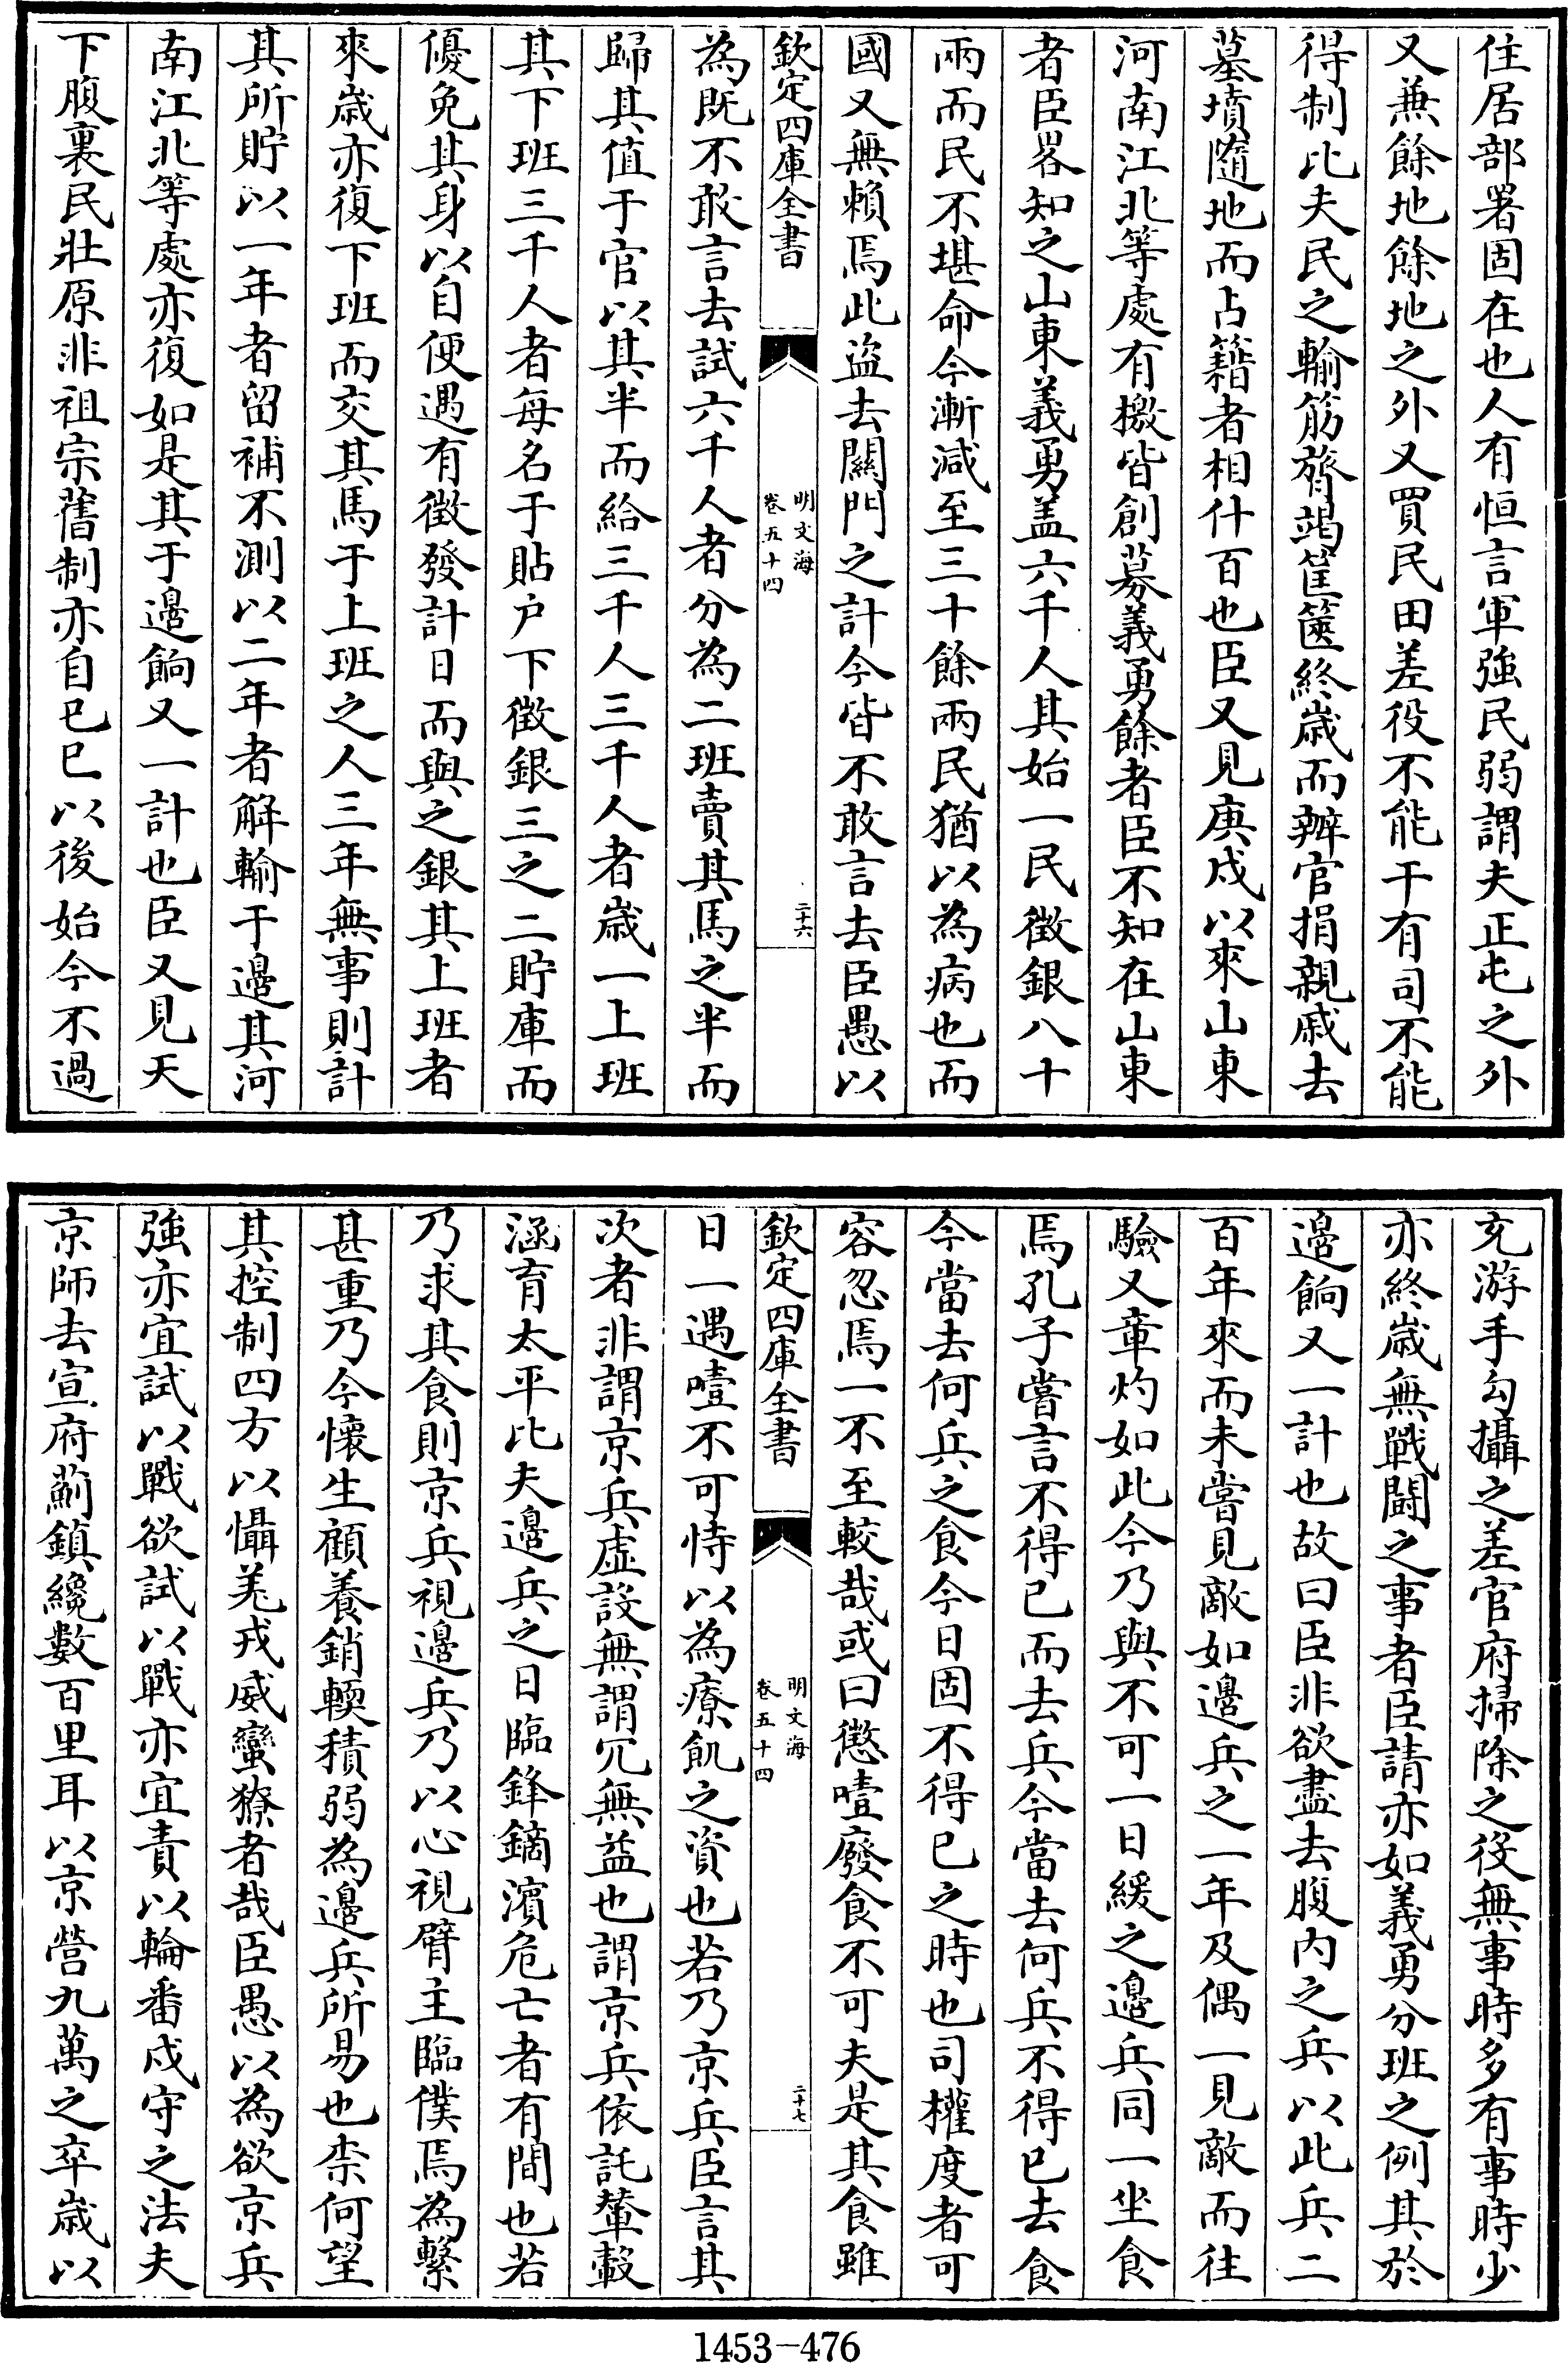 住居部署固在也人有恒言軍強民弱謂夫正屯之外
又兼餘地餘地之外又買民田差役不能干有司不能
得制比夫民之輸筋膂竭筐篋終歲而辦官捐親戚去
墓墳隨地而占籍者相什百也臣又見庚戍以來山東
河南江北等處有檄皆創募義勇餘者臣不知在山東
者臣畧知之山東義勇盖六千人其始一民徵銀八十
兩而民不堪命今漸減至三十餘兩民猶以為病也而
國又無賴焉此盜去關門之計今皆不敢言去臣愚以
欽定四庫全書
明文海
卷五十四
二十六
為既不敢言去試六千人者分為二班賣其馬之半而
歸其值于官以其半而給三千人三千人者歲一上班
其下班三千人者每名于貼户下徵銀三之二貯庫而
優免其身以自便遇有徵發計日而與之銀其上班者
來歲亦復下班而交其馬于上班之人三年無事則計
其所貯以一年者留補不測以二年者解輸于邊其河
南江北等處亦復如是其于邊餉又一計也臣又見天
下腹裏民壯原非祖宗舊制亦自已巳以後始今不過
充游手勾攝之差官府掃除之役無事時多有事時少
亦終歲無戰鬪之事者臣請亦如義勇分班之例其於
邊餉又一計也故曰臣非欲盡去腹內之兵以此兵二
百年來而未嘗見敵如邊兵之一年及偶一見敵而往
驗又章灼如此今乃與不可一日緩之邊兵同一坐食
焉孔子嘗言不得已而去兵今當去何兵不得已去食
今當去何兵之食今日固不得已之時也司權度者可
容忽焉一不至較哉或曰懲噎廢食不可夫是其食雖
欽定四庫全書
明文海
卷五十四
二十七
日一遇噎不可恃以為療飢之資也若乃京兵臣言其
次者非謂京兵虛設無謂冗無益也謂京兵依託輦轂
涵育太平比夫邊兵之日臨鋒鏑濱危亡者有間也若
乃求其食則京兵視邊兵乃以心視臂主臨僕焉為繫
甚重乃今懷生顧養銷輭積弱為邊兵所易也柰何望
其控制四方以懾羌戎威蠻獠者哉臣愚以為欲京兵
強亦宜試以戰欲試以戰亦宜責以輪番戍守之法夫
京師去宣府薊鎮纔數百里耳以京營九萬之卒歲以
1453-476